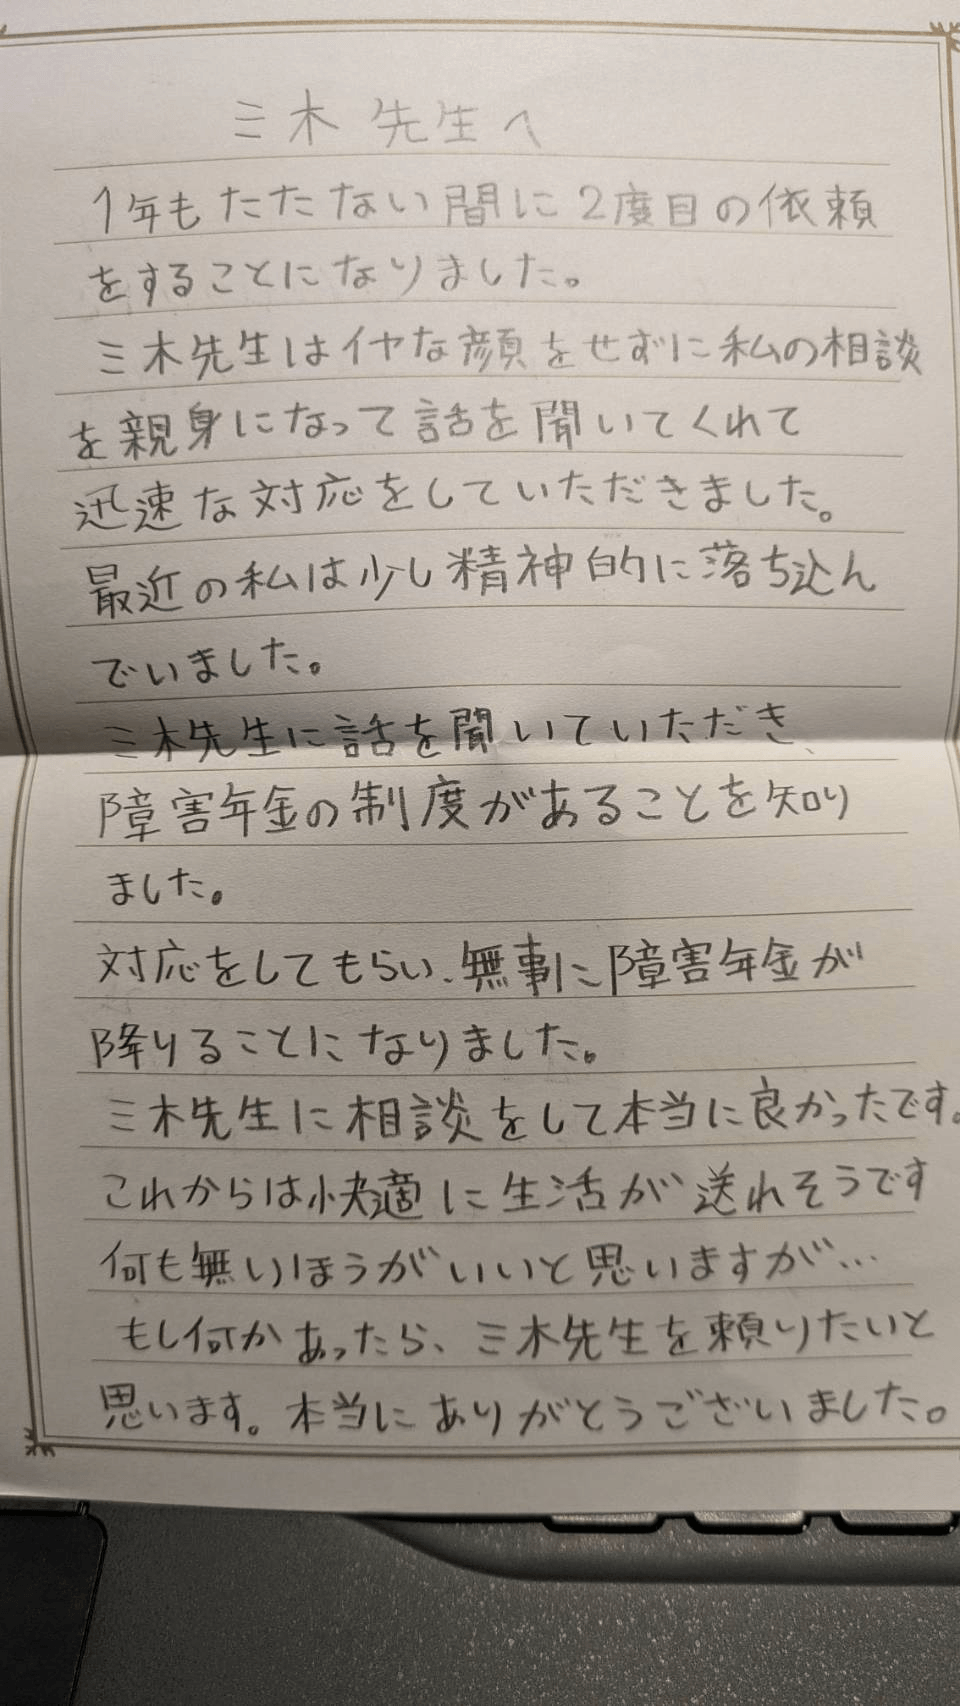 三木先生へ
1年もたたない間に2度目の依頼
をすることになりました。
三木先生はイヤな顔をせずに私の相談
を親身になって話を聞いてくれて
迅速な対応をしていただきました。
最近の私は少し精神的に落ち込ん
でいました。
三木先生に話を聞いていただき、
障害年金の制度があることを知り
ました。
対応をしてもらい、無事に障害年金が
降りることになりました。
三木先生に相談をして本当に良かったです。
これからは快適に生活が送れそうです
何も無いほうがいいと思いますが…
もし何かあったら、三木先生を頼りたいと
思います。本当にありがとうございました。